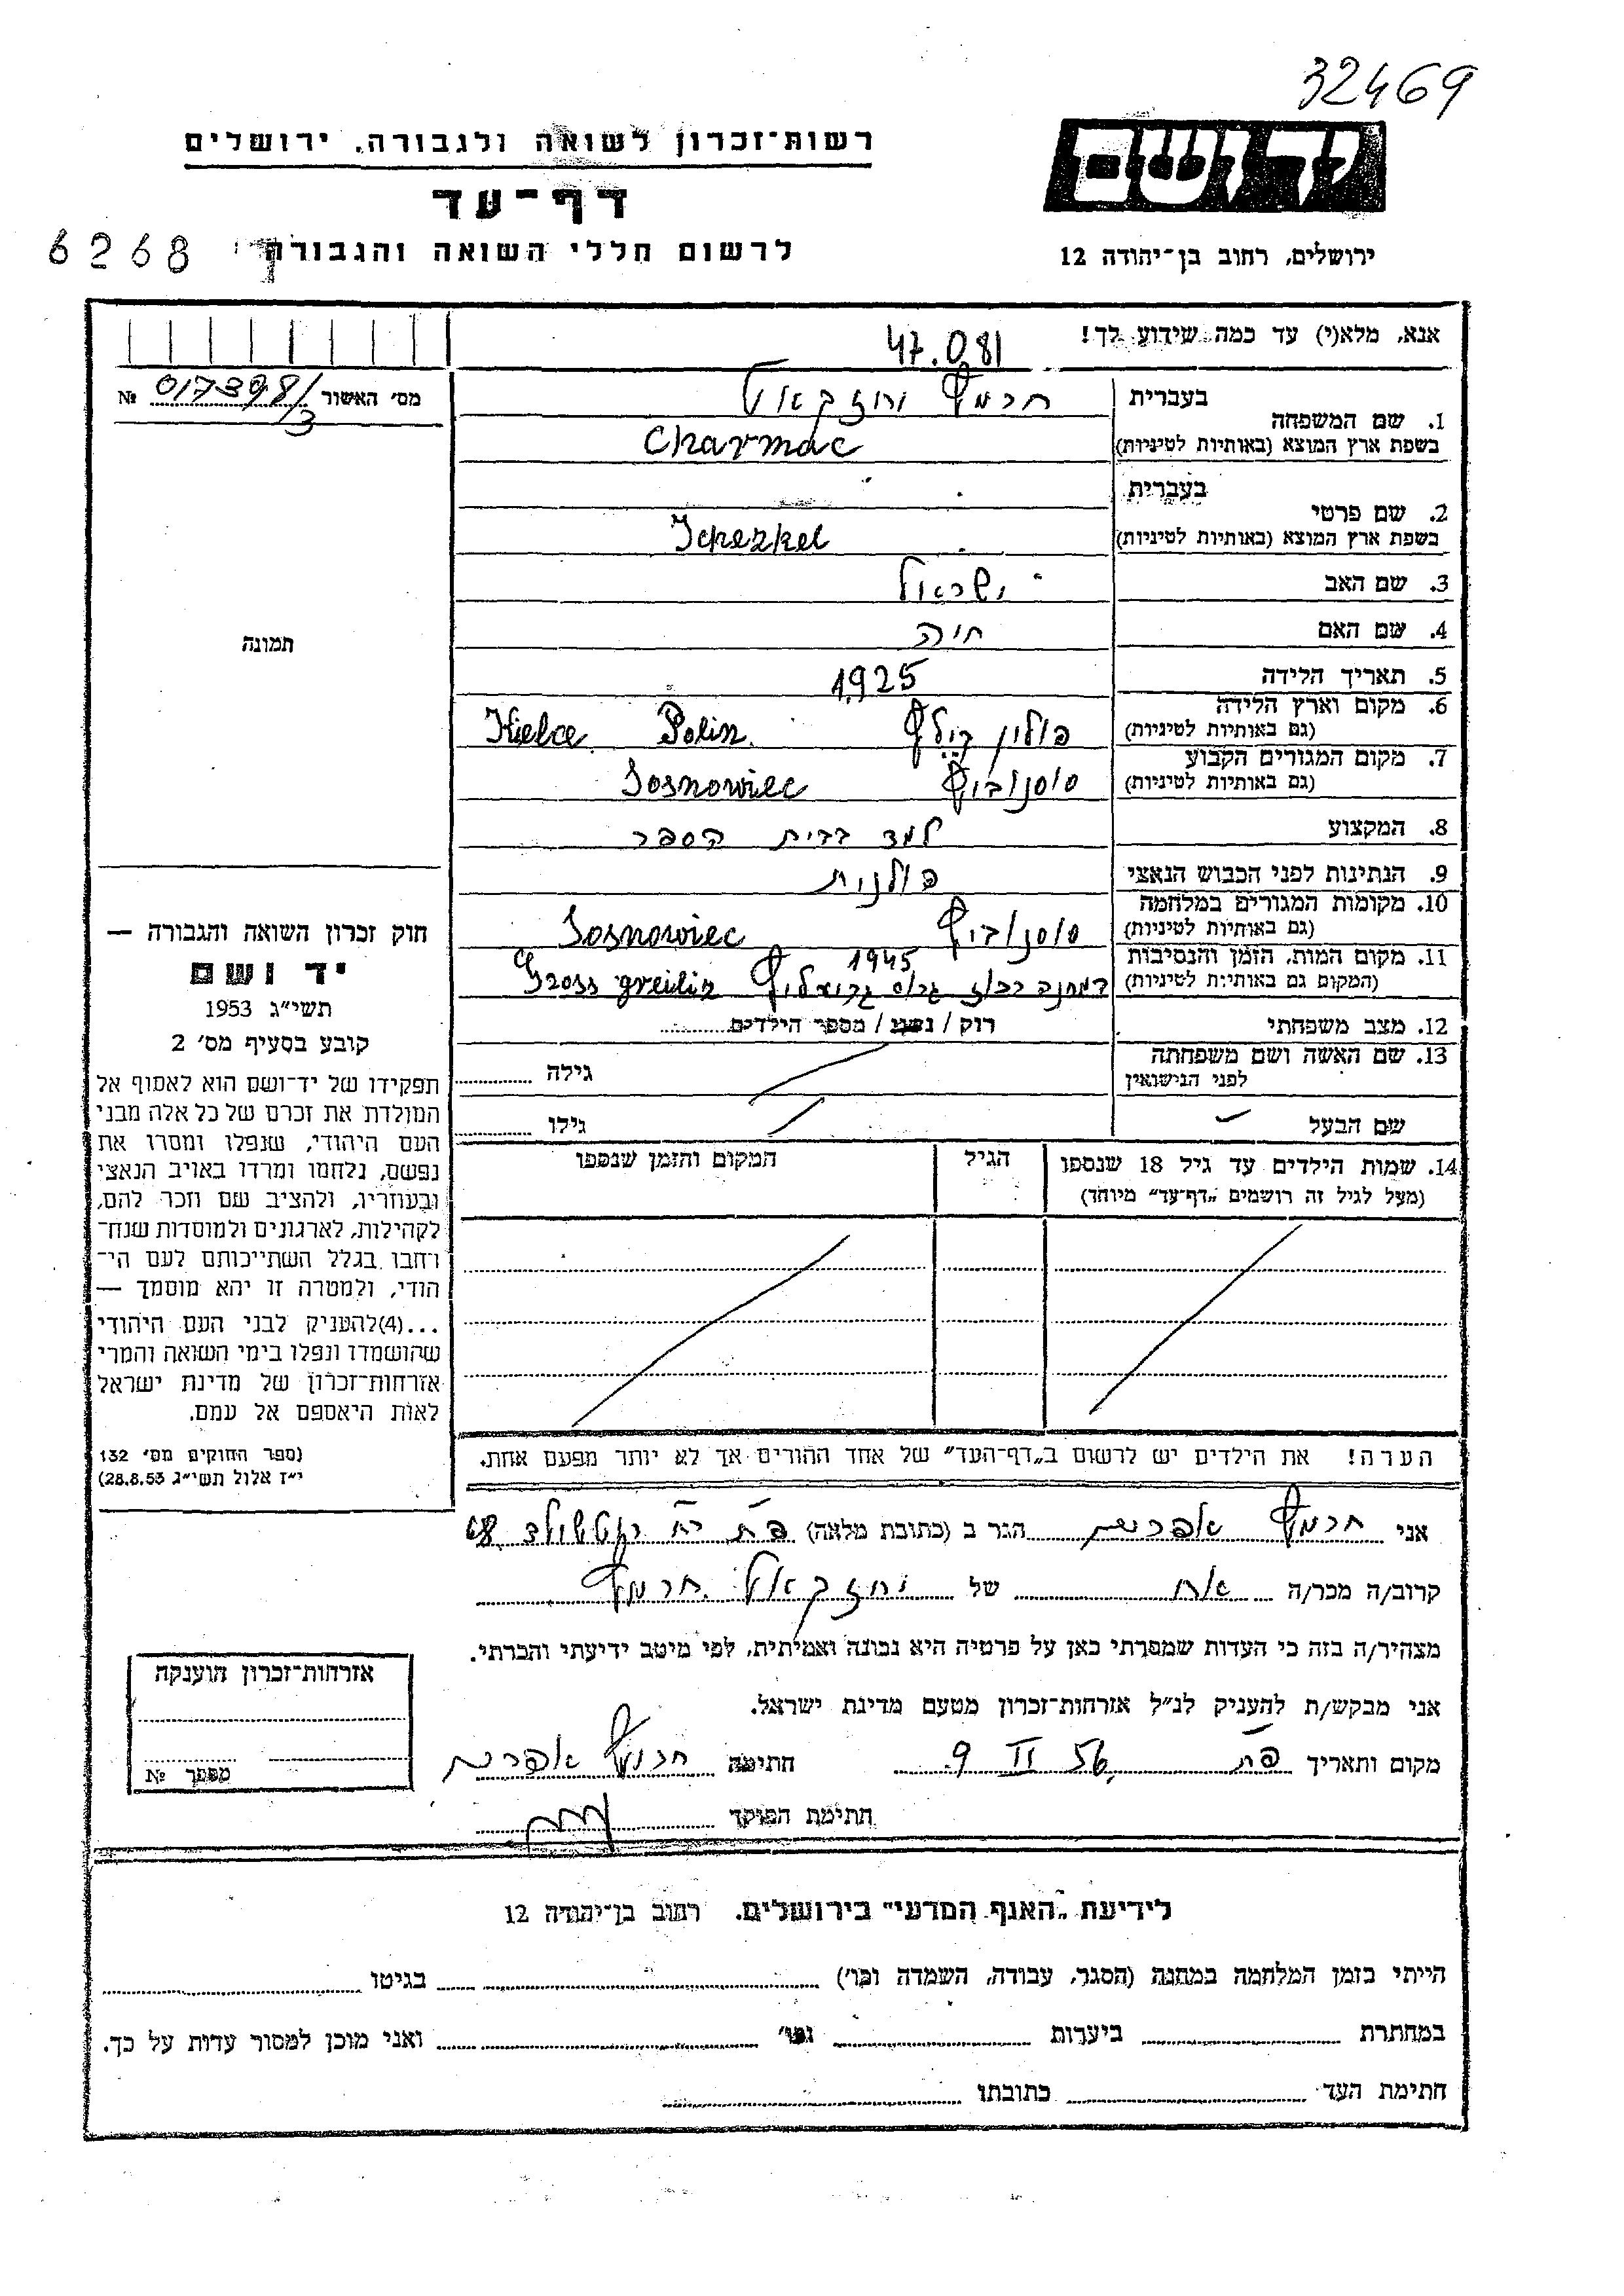 32469
רשות־זכרון לשואה ולגבורה, ירושלים
יד ושם
דף־עד
לרשום חללי השואה והגבורה
6268
ירושלים, רחוב בן־יהודה 12
אנא, מלא(י) עד כמה שידוע לך!
47.081
מס׳ האשור 017398/3 №
1. שם המשפחה
בעברית חרמץ יחזקאל
בשפת ארץ המוצא (באותיות לטיניות) Charmac
2. שם פרטי
בעברית
בשפת ארץ המוצא (באותיות לטיניות) Ichezkel
3. שם האב ישראל
4. שם האם חיה
תמונה
5. תאריך הלידה 1925
6. מקום וארץ הלידה
(גם באותיות לטיניות) פולין קילץ Polin Kielce
7. מקום המגורים הקבוע
(גם באותיות לטיניות) סוסנוביץ Sosnowiec
8. המקצוע למד בבית הספר
9. הנתינות לפני הכבוש הנאצי פולנית
10. מקומות המגורים במלחמה
(גם באותיות לטיניות) סוסנוביץ Sosnowiec
11. מקום המות, הזמן והנסיבות 1945
(המקום גם באותיות לטיניות) גרוס Gross greilin
12. מצב משפחתי רוק / נשוי / מספר הילדים
13. שם האשה ושם משפחתה
לפני הנישואין גילה
שם הבעל גילו
14. שמות הילדים עד גיל 18 שנספו הגיל המקום והזמן שנספו
(מעל לגיל זה רושמים „דף־עד” מיוחד)
הערה! את הילדים יש לרשום ב„דף־העד” של אחד ההורים אך לא יותר מפעם אחת.
חוק זכרון השואה והגבורה —
יד ושם
תשי״ג 1953
קובע בסעיף מס׳ 2
תפקידו של יד־ושם הוא לאסוף אל
המולדת את זכרם של כל אלה מבני
העם היהודי, שנפלו ומסרו את
נפשם, נלחמו ומרדו באויב הנאצי
ובעוזריו, ולהציב שם וזכר להם,
לקהילות, לארגונים ולמוסדות שנח־
רחבו בגלל השתייכותם לעם הי־
הודי, ולמטרה זו יהא מוסמך —
...(4)להעניק לבני העם היהודי
שהושמדו ונפלו בימי השואה והמרי
אזרחות־זכרון של מדינת ישראל
לאות היאספם אל עמם.
(ספר החוקים מס׳ 132
י״ז אלול תשי״ג 28.8.53)
אני חרמץ אפרים הגר ב (כתובת מלאה)
קרוב/ה מכר/ה אח של יחזקאל חרמץ
מצהיר/ה בזה כי העדות שמסרתי כאן על פרטיה היא נכונה ואמיתית, לפי מיטב ידיעתי והכרתי.
אני מבקש/ת להעניק לנ״ל אזרחות־זכרון מטעם מדינת ישראל.
מקום ותאריך פ״ת 9 II 56 חתימה חרמץ אפרים
חתימת הפוקד
אזרחות־זכרון הוענקה
מספר №
לידיעת „האגף המדעי” בירושלים, רחוב בן־יהודה 12
הייתי בזמן המלחמה במחנה (הסגר, עבודה, השמדה וכו׳) בגיטו
במחתרת ביערות וכו׳ ואני מוכן למסור עדות על כך.
חתימת העד כתובתו